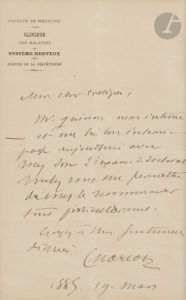 FACULTÉ DE MÉDECINE
CLINIQUE
DES MALADIES
DU
SYSTÈME NERVEUX
HOSPICE DE LA SALPÊTRIÈRE
Mon cher collègue,
Mr quinon mon interne
et un bon interne
passe aujourd'hui avec
vous son 2e examen de doctorat
Voulez vous me permettre
de vous le recommander
tout particulièrement.
Croyez à mes sentiments
Charcot
1885 19 Mars